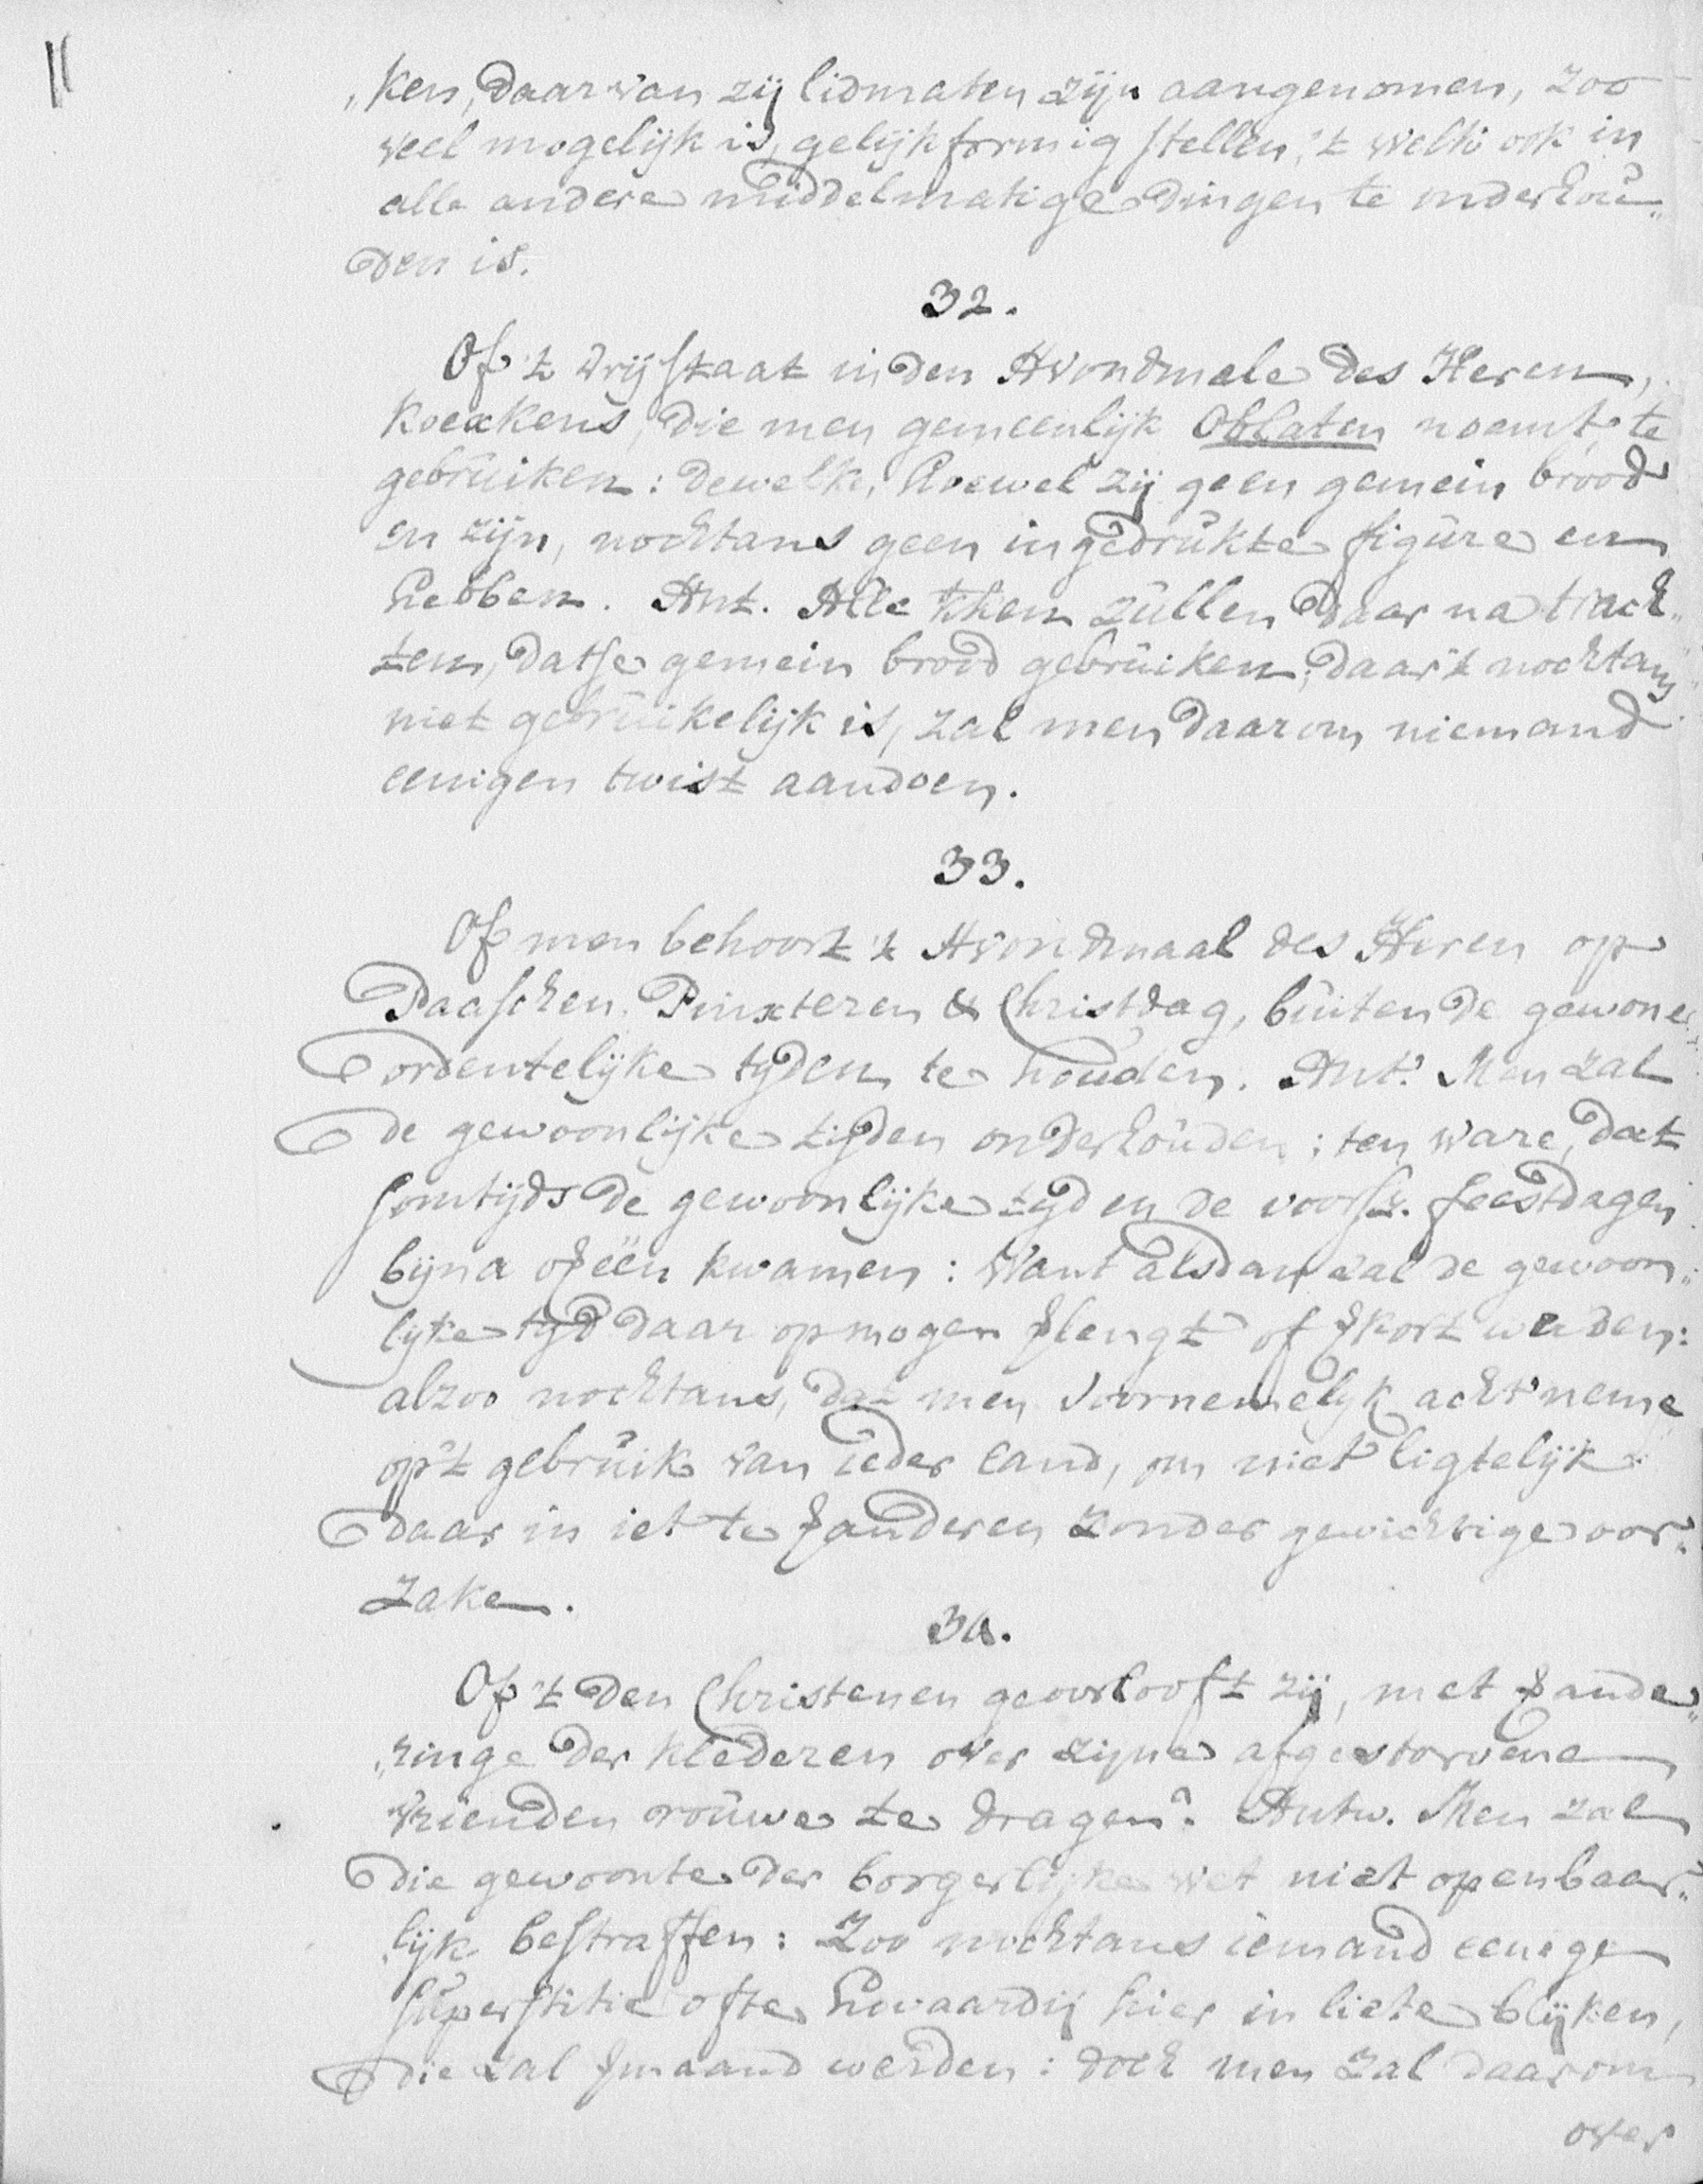 11
„ken, daar van zij lidmaten zijn aangenomen, zoo
veel mogelijk is, gelijkformig stellen, 't welk ook in
alle andere middelmatige dingen te onderhoû„
den is.
32.
Of 't vrij staat in den Avondmale des Heren,
koexkens, die men gemeenlijk Oblaten noemt, te
gebrûiken: dewelke, hoewel zij geen gemein brood
en zijn, nochtans geen ingedrûkte figûre en
hebben. Ant. Alle kken zûllen daar na trach„
ten, datse gemein brood gebrûiken, daar't nochtans
niet gebrûikelijk is, zal men daarom niemand
eenigen twist aandoen.
33.
Of men behoort 't Avondmaal des Heren op
Paaschen, Pinxteren & Christdag, bûiten de gewone
ordentelijke tijden te hoûden. Ant. Men zal
de gewoonlijke tijden onderhoûden; ten ware, dat
somtijds de gewoonlijke tijd en de voors. feestdagen
bijna op één kwamen: Want alsdan zal de gewoon„
lijke tijd daar op mogen ƒlengt of ƒkort werden:
alzoo nochtans, dat men voornemelijk acht neme
op't gebrûik van ieder land, om niet ligtelijk
daar in iet te ƒanderen zonder gewichtige oor„
zake.
34.
Of 't den Christenen geoorlooft zij, met ƒande„
„ringe der klederen over zijne afgestorvene
vrienden roûwe te dragen? Antw. Men zal
die gewoonte der borgerlijke wet niet openbaar„
„lijk bestraffen: Zoo nochtans iemand eenige
sûperstitie ofte hovaardij hier in liete blijken,
die zal ƒmaand werden: doch men zal daarom
over